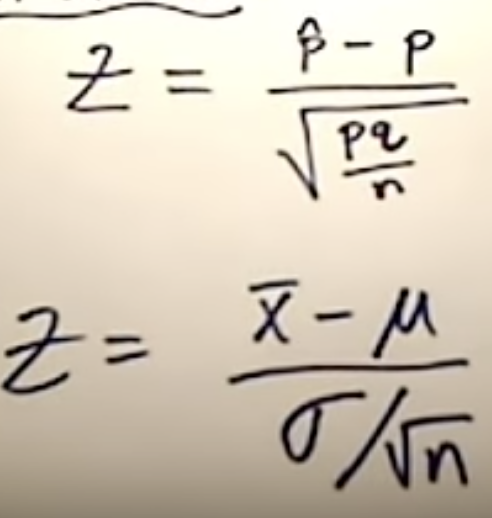 Z = (p̂ - p) / √(pq/n)
Z = (x̄ - μ) / (σ/√n)